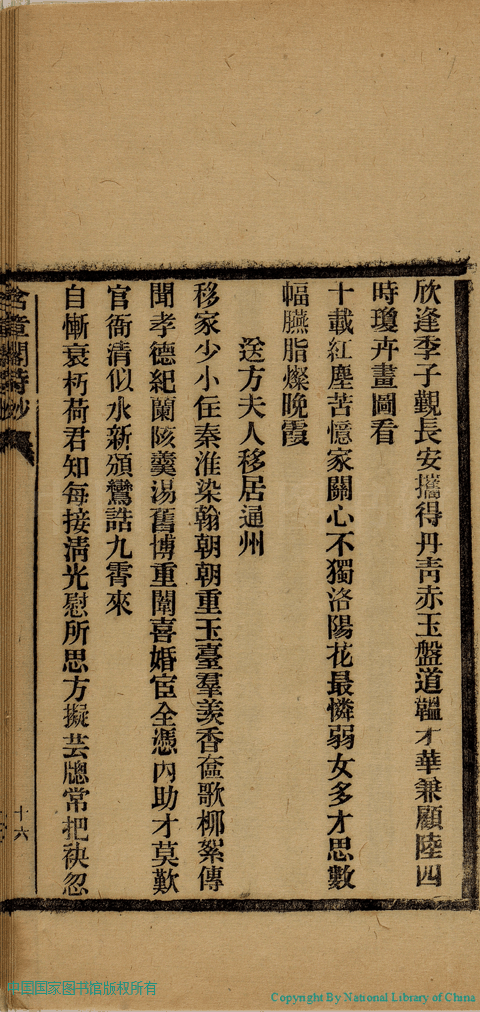 欣逢季子覲長安攜得丹靑赤玉盤道韞才華兼顧陸四
時瓊卉畫圖看
十載紅塵苦憶家關心不獨洛陽花最憐弱女多才思數
幅臙脂燦晚霞
送方夫人移居通州
移家少小住秦淮染翰朝朝重玉臺羣羨香奩歌柳絮傳
聞孝德紀蘭陔羹湯舊博重闈喜婚宦全憑內助才莫歎
官衙清似水新頒鸞誥九霄來
自慚衰朽荷君知每接淸光慰所思方擬芸牕常把袂忽
含章閣詩鈔
十六
中国国家图书馆版权所有
Copyright By National Library of China